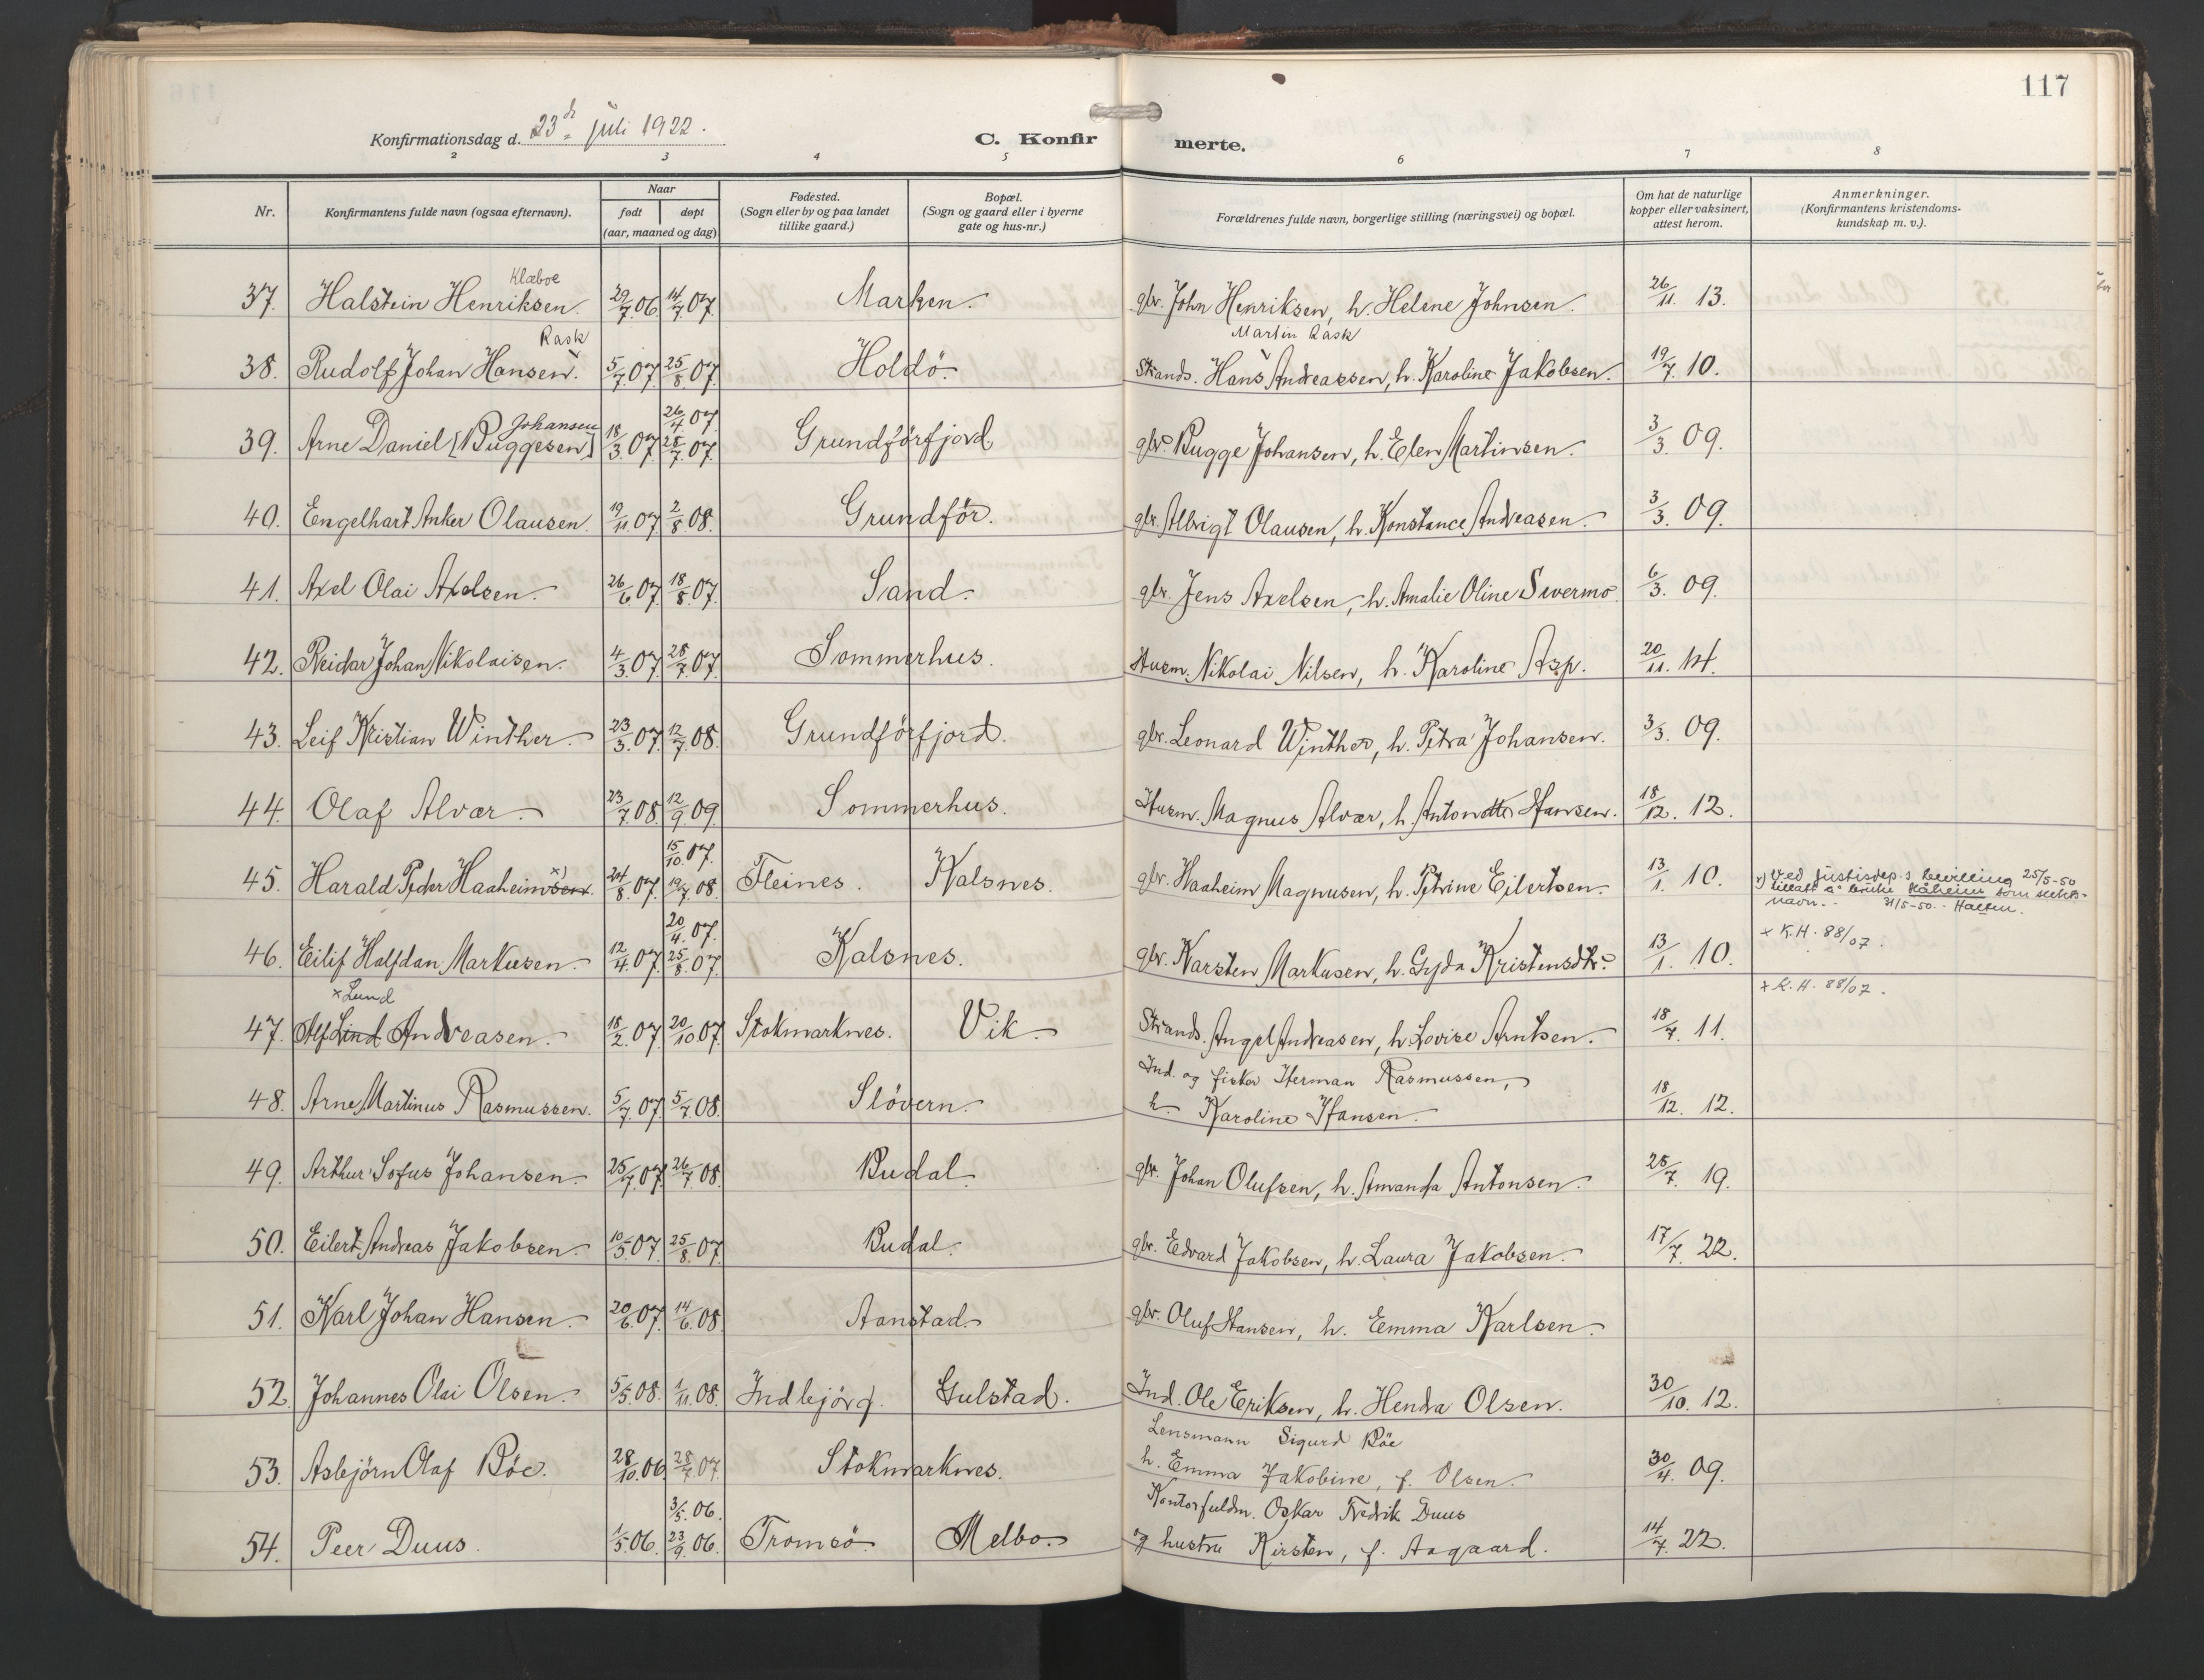 117
Konfirmationsdag d. 23de juli 1922.
C. Konfir merte.
2 3 4 5 6 7 8
Nr. Konfirmantens fulde navn (ogsaa efternavn). Naar født døpt (aar, maaned og dag) Fødested. (Sogn eller by og paa landet tillike gaard.) Bopæl. (Sogn og gaard eller i byerne gate og hus-nr.) Forældrenes fulde navn, borgerlige stilling (næringsvei) og bopæl. Om hat de naturlige kopper eller vaksinert, attest herom. Anmerkninger. (Konfirmantens kristendoms-kundskap m. v.).
Klæboe
37. Halstein Henriksen. 29/7.06. 14/7.07. Marken. gbr. John Henriksen, h. Helene Johnsen. 26/11. 13.
Rask Martin Rask
38. Rudolf Johan Hansen. 5/7.07. 25/8.07. Holdö. Strands. Hans Andreassen, h. Karoline Jakobsen. 19/7. 10.
Johansen 26/4.07.
39. Arne Daniel [Buggesen] 18/3.07. 28/7.07. Grundförfjord gbr. Bugge Johansen, h. Elen Martinsen. 3/3. 09.
40. Engelhart Anker Olausen. 19/11.07. 2/8.08. Grundför. gbr. Albrigt Olausen, h. Konstance Andreasen. 3/3. 09.
41. Axel Olai Axelsen. 26/6.07. 18/8.07. Sand. gbr. Jens Axelsen, h. Amalie Oline Svermo. 6/3. 09.
42. Reidar Johan Nikolaisen. 4/3.07. 28/7.07. Sommerhus. Husm. Nikolai Nilsen, h. Karoline Asp. 20/11. 14.
43. Leif Kristian Winther. 23/3.07. 12/7.08. Grundförfjord. gbr. Leonard Winther, h. Petra Johansen. 3/3. 09.
44. Olaf Alvær. 23/7.08. 12/9.09. Sommerhus. Husm. Magnus Alvær, h. Antonette Hansen. 18/12. 12.
15/10.07.
45. Harald Peder Haaheimsen x) 24/8.07. 19/7.08. Fleines. Kalsnes. gbr. Haaheim Magnusen, h. Petrine Eilertsen. 13/1. 10. x) ved justisdep.s bevilling 25/5-50
tillatt å bruke Håheim som slekts-
navn. 31/5-50. Halten.
20/4.07.
46. Eilif Halfdan Markusen. 12/4.07. 25/8.07. Kalsnes. gbr. Karsten Markusen, h. Gyda Kristensdtr. 13/1. 10. + K.H. 88/07.
x Lund + K.H. 88/07.
47. Alf Lind Andreasen. 18/2.07. 20/10.07. Stokmarknes. Vik. Strands. Angel Andreasen, h. Lovise Arntsen. 18/7. 11.
Ind. og fisker Herman Rasmussen,
48. Arne Martinus Rasmussen. 5/7.07. 5/7.08. Slövern. h. Karoline Hansen. 18/12. 12.
49. Arthur Sofus Johansen. 25/7.07. 26/7.08. Budal. gbr. Johan Olufsen, h. Amanda Antonsen. 28/7. 19.
50. Eilert Andreas Jakobsen. 10/5.07. 25/8.07. Budal. gbr. Edvard Jakobsen, h. Laura Jakobsen. 17/7. 22.
51. Karl Johan Hansen. 20/6.07. 14/6.08. Aanstad. gbr. Oluf Hansen, h. Emma Karlsen.
52. Johannes Olai Olsen. 5/5.08. 1/11.08. Indbjörg. Gulstad. Ind. Ole Eriksen, h. Hendra Olsen. 30/10. 12.
Lensmann Sigurd Böe
53. Asbjörn Olaf Böe. 28/10.06. 28/7.07. Stokmarknes. h. Emma Jakobine, f. Olsen. 30/4. 09.
3/5.06. Kontorfuldm. Oskar Fredrik Duus
54. Peer Duus. 1/5.06. 23/9.06. Tromsö. Melbo. og hustru Kirsten, f. Aagaard. 14/7. 22.